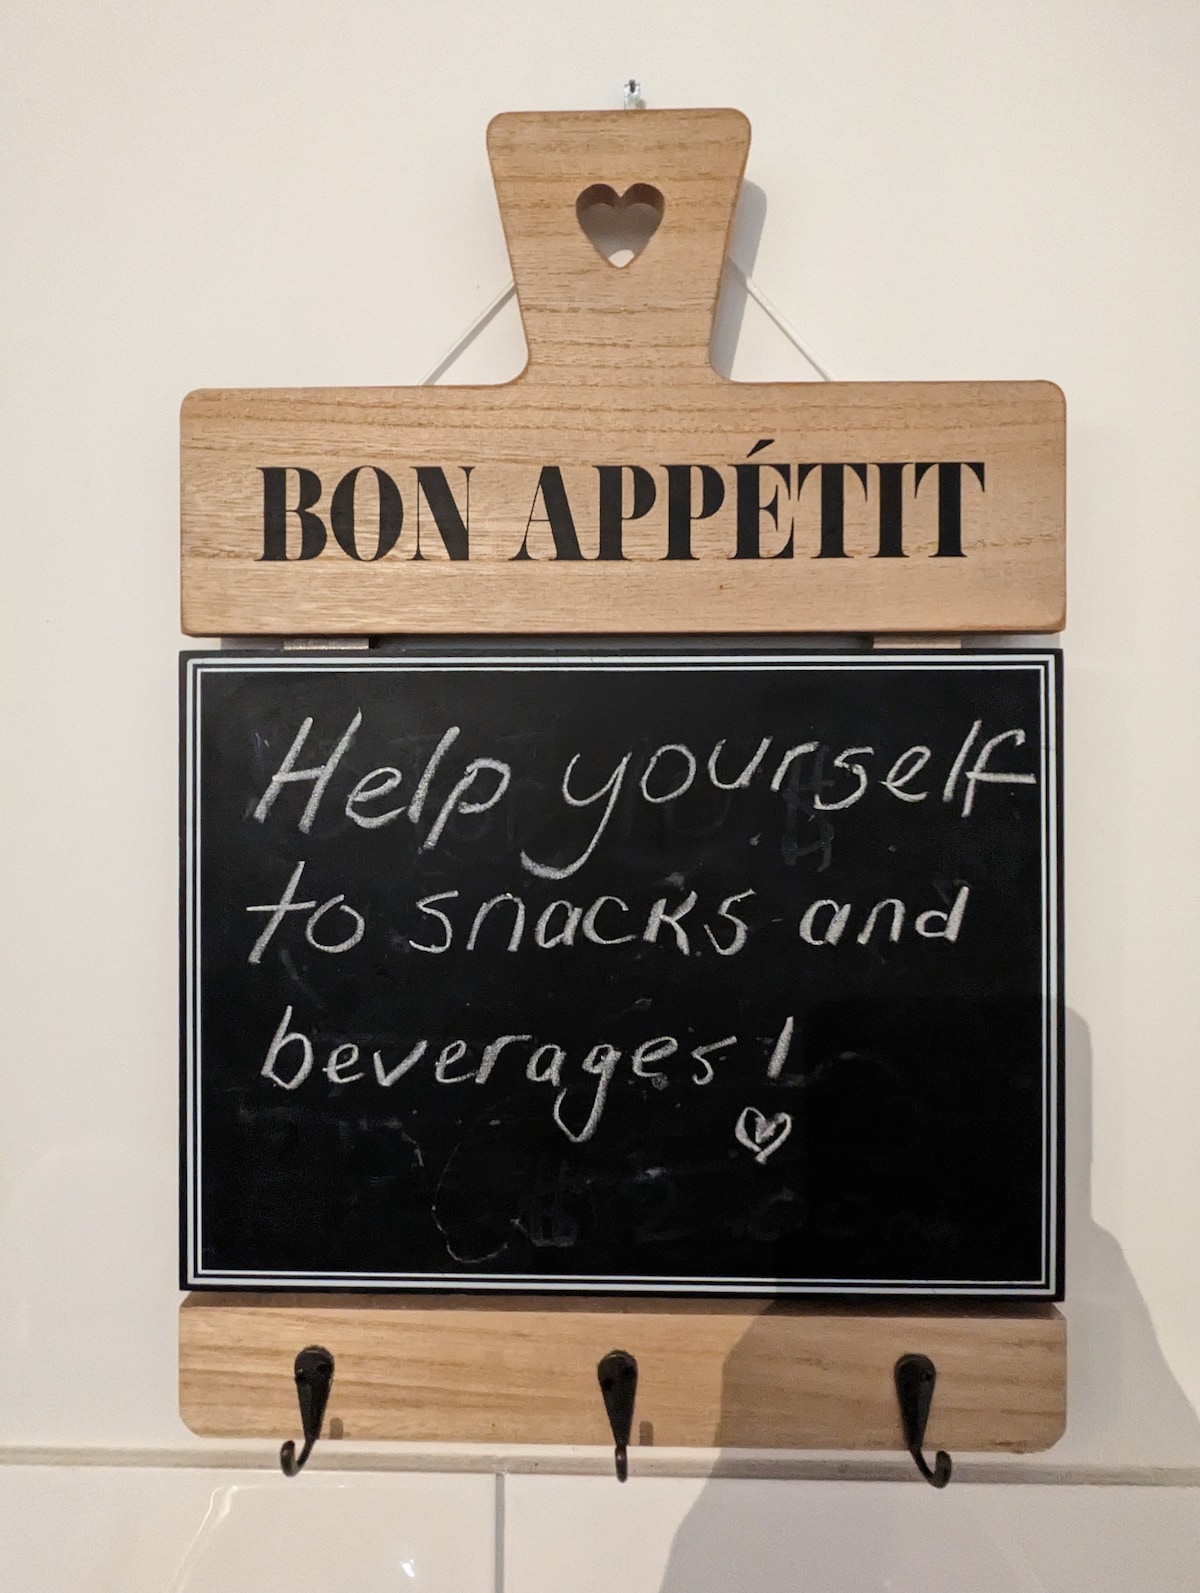 BON APPÉTIT
Help yourself
to snacks and
beverages!